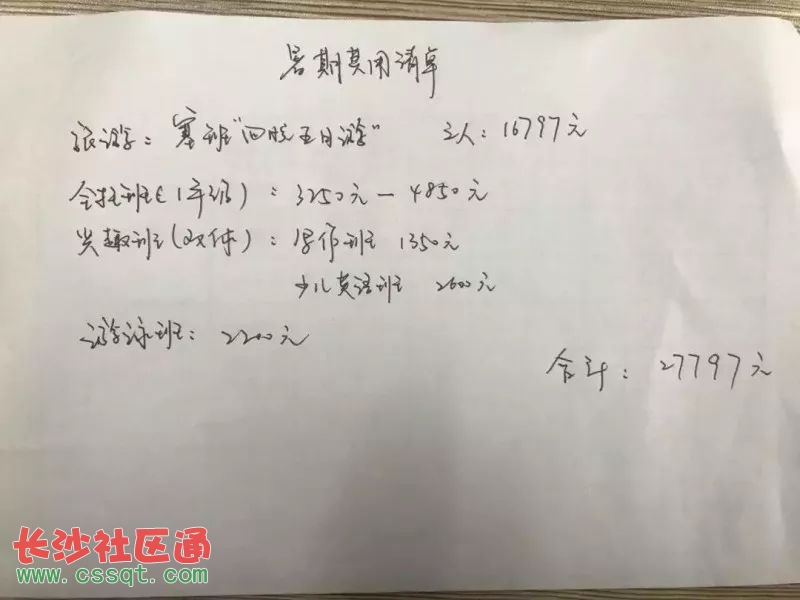 暑期费用清单
旅游：塞班"四晚五日游" 三人：16797元
全托班(1年级)：3250元—4850元
兴趣班(双休)：写作班 1350元
少儿英语班 2600元
游泳班：2200元
合计：27797元
长沙社区通
www.cssqt.com